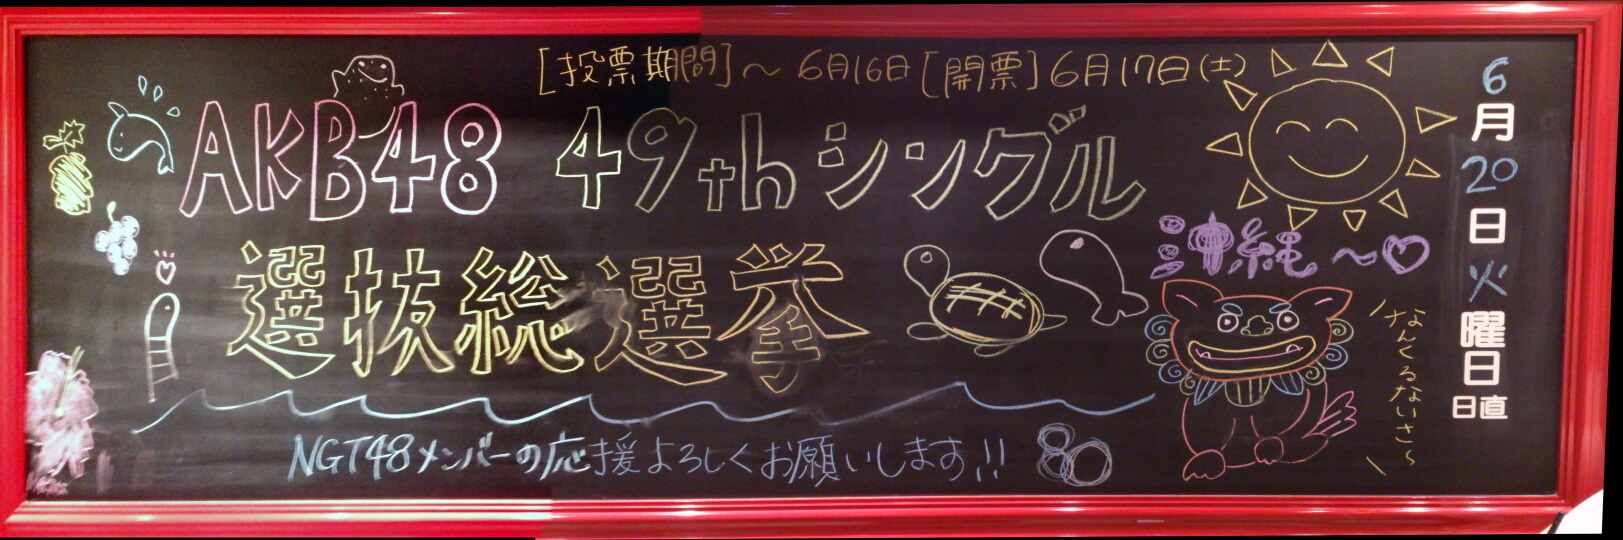 [投票期間]～6月16日[開票]6月17日(土)
AKB48 49thシングル
選抜総選挙
NGT48メンバーの応援よろしくお願いします!!
沖縄～♡
なんくるないさ～
6
月
20
日
火
曜
日
日直